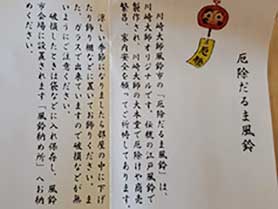 厄除だるま風鈴
厄除
川崎大師風鈴市の「厄除だるま風鈴」は、
川崎大師オリジナルです。伝統の江戸風鈴で
製作され、川崎大師の大本堂で厄除けや商売
繁昌、家内安全を願ってご祈祷してあります。
涼しい季節になりましたら部屋の中に下げ
たり飾り棚などに置いてお飾りください。ま
た、ガラスで出来ていますので破損などが無
いようにご注意ください。
破損したときは袋などに入れ保存し、風鈴
市会場に設置されます「風鈴納め所」へお納
めください。